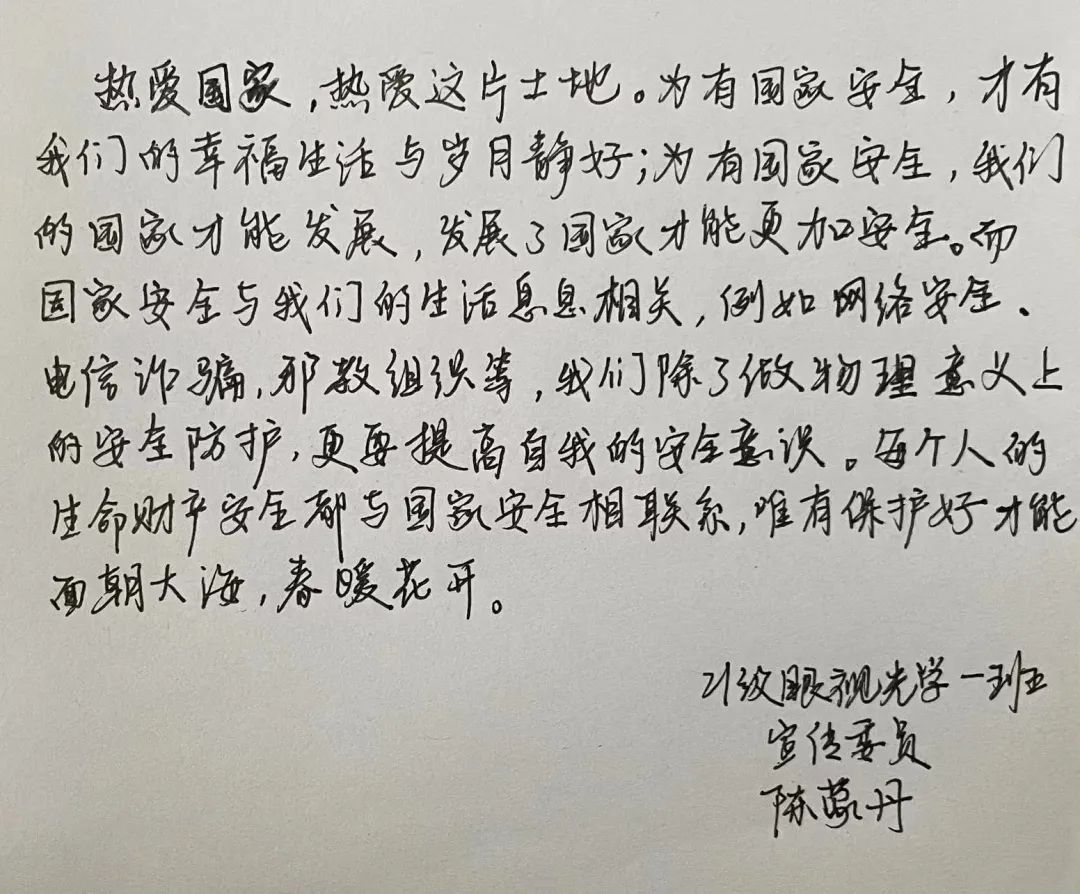 热爱国家，热爱这片土地。为有国家安全，才有
我们的幸福生活与岁月静好；为有国家安全，我们
的国家才能发展，发展了国家才能更加安全。而
国家安全与我们的生活息息相关，例如网络安全、
电信诈骗，邪教组织等，我们除了做物理意义上
的安全防护，更要提高自我的安全意识。每个人的
生命财产安全都与国家安全相联系，唯有保护好才能
面朝大海，春暖花开。
21级眼视光学一班
宣传委员
陈蒙丹